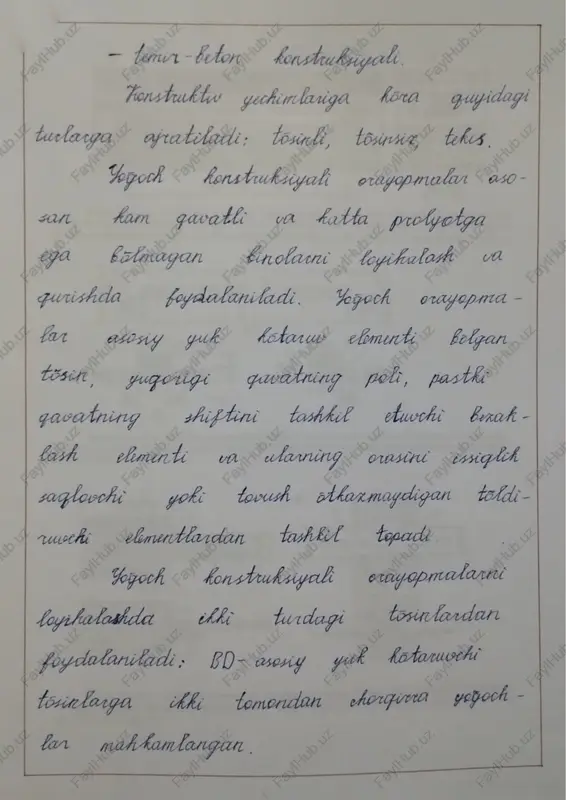 - temir-beton konstruksiyali.
Konstruktiv yechimlariga kõra quyidagi
turlarga ajratiladi: tõsinli, tõsinsiz, tekis.
Yogoch konstruksiyali orayopmalar aso-
san kam qavatli va katta prolyotga
ega bõlmagan binolarni loyihalash va
qurishda foydalaniladi. Yogoch orayopma-
lar asosiy yuk kõtaruv elementi bõlgan
tõsin, yuqorigi qavatning poli, pastki
qavatning shiftini tashkil etuvchi bezak-
lash elementi va ularning orasini issiqlik
saqlovchi yoki tovush õtkazmaydigan tõldi-
ruvchi elementlardan tashkil topadi
Yogoch konstruksiyali orayopmalarni
loyihalashda ikki turdagi tõsinlardan
foydalaniladi: BD- asosiy yuk kõtaruvchi
tõsinlarga ikki tomondan chorqirra yogoch-
lar mahkamlangan.
FaylHub.uz